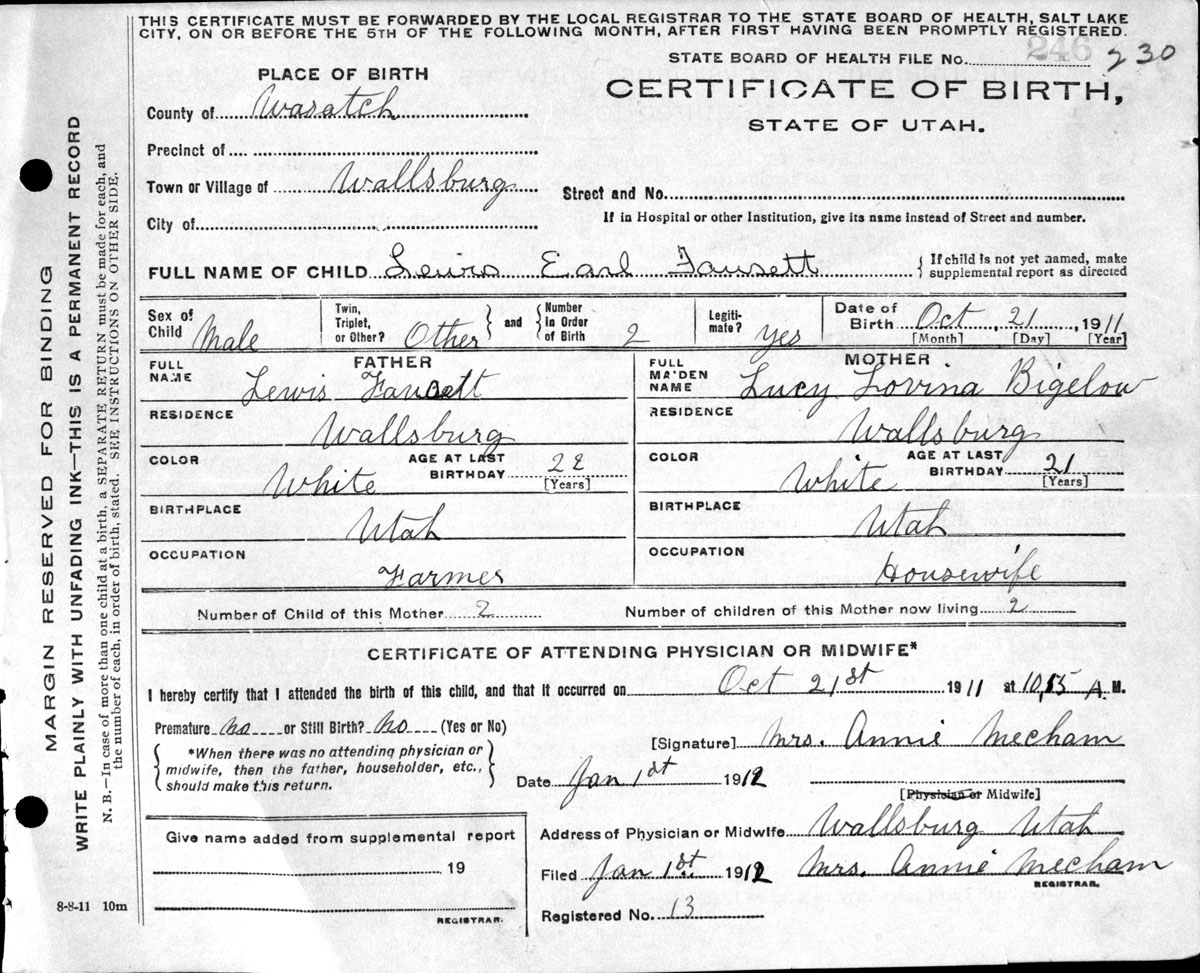 THIS CERTIFICATE MUST BE FORWARDED BY THE LOCAL REGISTRAR TO THE STATE BOARD OF HEALTH, SALT LAKE
CITY, ON OR BEFORE THE 5TH OF THE FOLLOWING MONTH, AFTER FIRST HAVING BEEN PROMPTLY REGISTERED.
246
STATE BOARD OF HEALTH FILE No. 230
PLACE OF BIRTH
CERTIFICATE OF BIRTH,
STATE OF UTAH.
County of Wasatch
Precinct of
Town or Village of Wallsburg
Street and No.
City of
If in Hospital or other Institution, give its name instead of Street and number.
FULL NAME OF CHILD Lewis Earl Fausett
{ If child is not yet named, make
supplemental report as directed
Sex of Child Male
Twin, Triplet, or Other? Other } and { Number In Order of Birth 2
Legiti-mate? Yes
Date of Birth Oct 21, 1911
[Month] [Day] [Year]
FATHER
FULL NAME Lewis Fausett
RESIDENCE Wallsburg
COLOR White AGE AT LAST BIRTHDAY 22 [Years]
BIRTHPLACE Utah
OCCUPATION Farmer
MOTHER
FULL MAIDEN NAME Lucy Lovina Bigelow
RESIDENCE Wallsburg
COLOR White AGE AT LAST BIRTHDAY 21 [Years]
BIRTHPLACE Utah
OCCUPATION Housewife
Number of Child of this Mother 2 Number of children of this Mother now living 2
CERTIFICATE OF ATTENDING PHYSICIAN OR MIDWIFE*
I hereby certify that I attended the birth of this child, and that it occurred on Oct 21st 1911 at 10,15 A.M.
Premature no or Still Birth? No (Yes or No)
{ *When there was no attending physician or
midwife, then the father, householder, etc.,
should make this return. }
[Signature] Mrs. Annie Mecham
Date Jan 1st 1912
[Physician or Midwife]
Address of Physician or Midwife Wallsburg Utah
Filed Jan 1st 1912 Mrs. Annie Mecham
REGISTRAR.
Registered No. 13
Give name added from supplemental report
19
REGISTRAR.
8-8-11 10m
MARGIN RESERVED FOR BINDING
WRITE PLAINLY WITH UNFADING INK—THIS IS A PERMANENT RECORD
N. B.—In case of more than one child at a birth, a SEPARATE RETURN must be made for each, and
the number of each, in order of birth, stated. SEE INSTRUCTIONS ON OTHER SIDE.